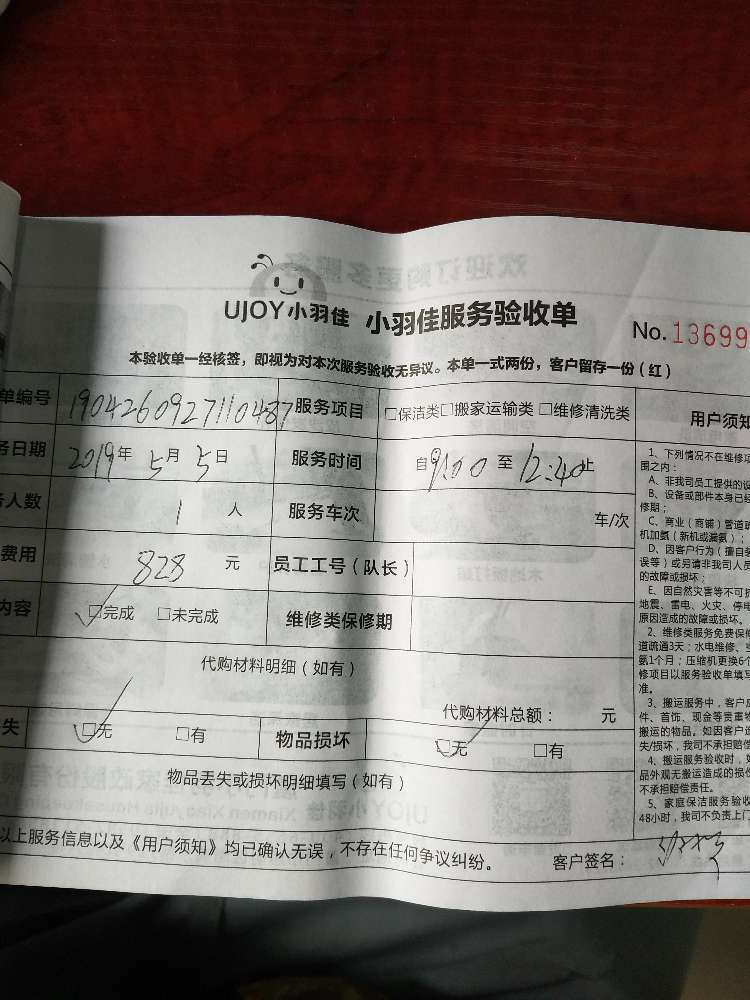 UJOY小羽佳 小羽佳服务验收单 No.13699
本验收单一经核签，即视为对本次服务验收无异议。本单一式两份，客户留存一份（红）
单编号 1904260927110487 服务项目 □保洁类□搬家运输类 □维修清洗类 用户须知
务日期 2019年5月5日 服务时间 自9:00至12:40止
务人数 1人 服务车次 车/次
费用 828元 员工工号（队长）
内容 ☑完成 □未完成 维修类保修期
代购材料明细（如有）
代购材料总额： 元
失 ☑无 □有 物品损坏 ☑无 □有
物品丢失或损坏明细填写（如有）
以上服务信息以及《用户须知》均已确认无误，不存在任何争议纠纷。 客户签名：
1、下列情况不在维修项
围之内：
A、非我司员工提供的设
B、设备或部件本身已经
修期；
C、商业（商铺）管道疏
机加氨（新机或漏氨）；
D、因客户行为（擅自装
误等）或另请非我司人员
的故障或损坏；
E、因自然灾害等不可抗
地震、雷电、火灾、停电
原因造成的故障或损坏。
2、维修类服务免费保修
道疏通3天；水电维修、空
氨1个月；压缩机更换6个
修项目以服务验收单填写
准。
3、搬运服务中，客户应
件、首饰、现金等贵重物
搬运的物品。如因客户造
失/损坏，我司不承担赔偿
4、搬运服务验收时，如
品外观无搬运造成的损
不承担赔偿责任。
5、家庭保洁服务验收
48小时，我司不负责上门